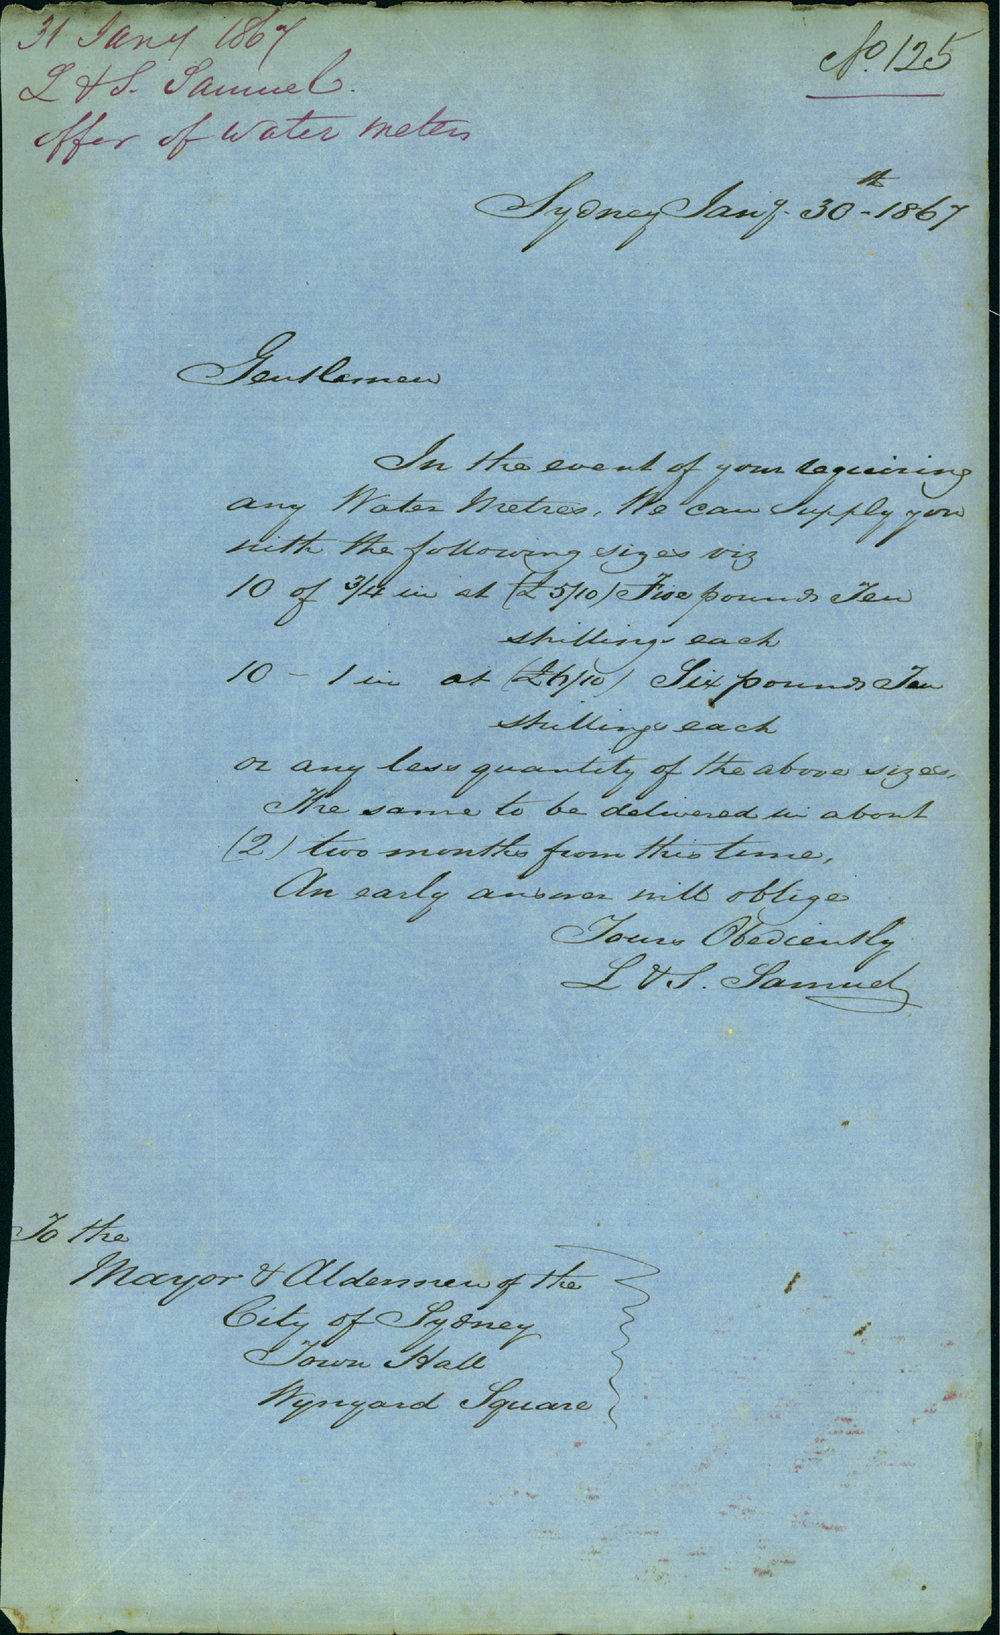 31 Jany 1867
L & S. Samuel.
offer of Water Meters
No. 125
Sydney Jany. 30th - 1867
Gentlemen
In the event of your requiring
any Water Metres, We can supply you
with the following sizes viz
10 of 3/4 in at (£5/10) Five pounds Ten
shillings each
10 - 1 in at (£6/10) Six pounds Ten
shillings each
or any less quantity of the above sizes,
The same to be delivered in about
(2) two months from this time,
An early answer will oblige
Yours Obediently
L & S. Samuel
To the
Mayor & Aldermen of the
City of Sydney
Town Hall
Wynyard Square